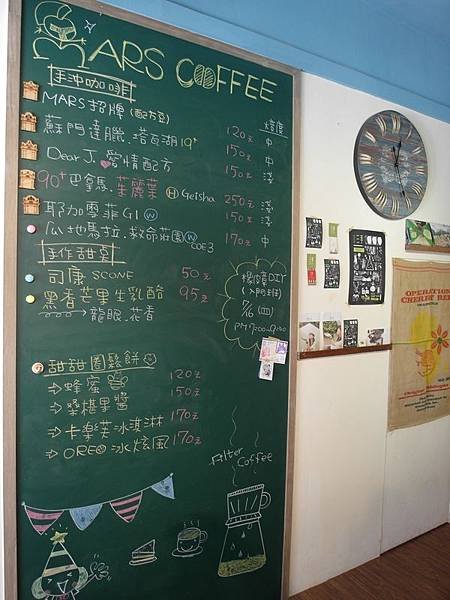 MARS COFFEE
手沖咖啡 焙度
MARS招牌 (配方豆) 120元 中
蘇門達臘.塔瓦湖19+ 150元 中
Dear J. 愛情配方 150元 淺
90+巴拿馬.茱麗葉 (H) Geisha 250元 淺
耶加雪菲G1 (W) 150元 淺
瓜地馬拉.救命莊園(W) COE3 170元 中
手作甜點
司康 SCONE 50元
黑香芒果生乳酪 95元
→龍眼.花香
DIY
(入門班)
7/6 (四)
PM7:00~9:00
甜甜圈鬆餅
⇒蜂蜜 120元
⇒桑椹果醬 150元
⇒卡樂芙冰淇淋 170元
⇒OREO冰炫風 170元
Filter Coffee
OPERATION
CHERRY RED